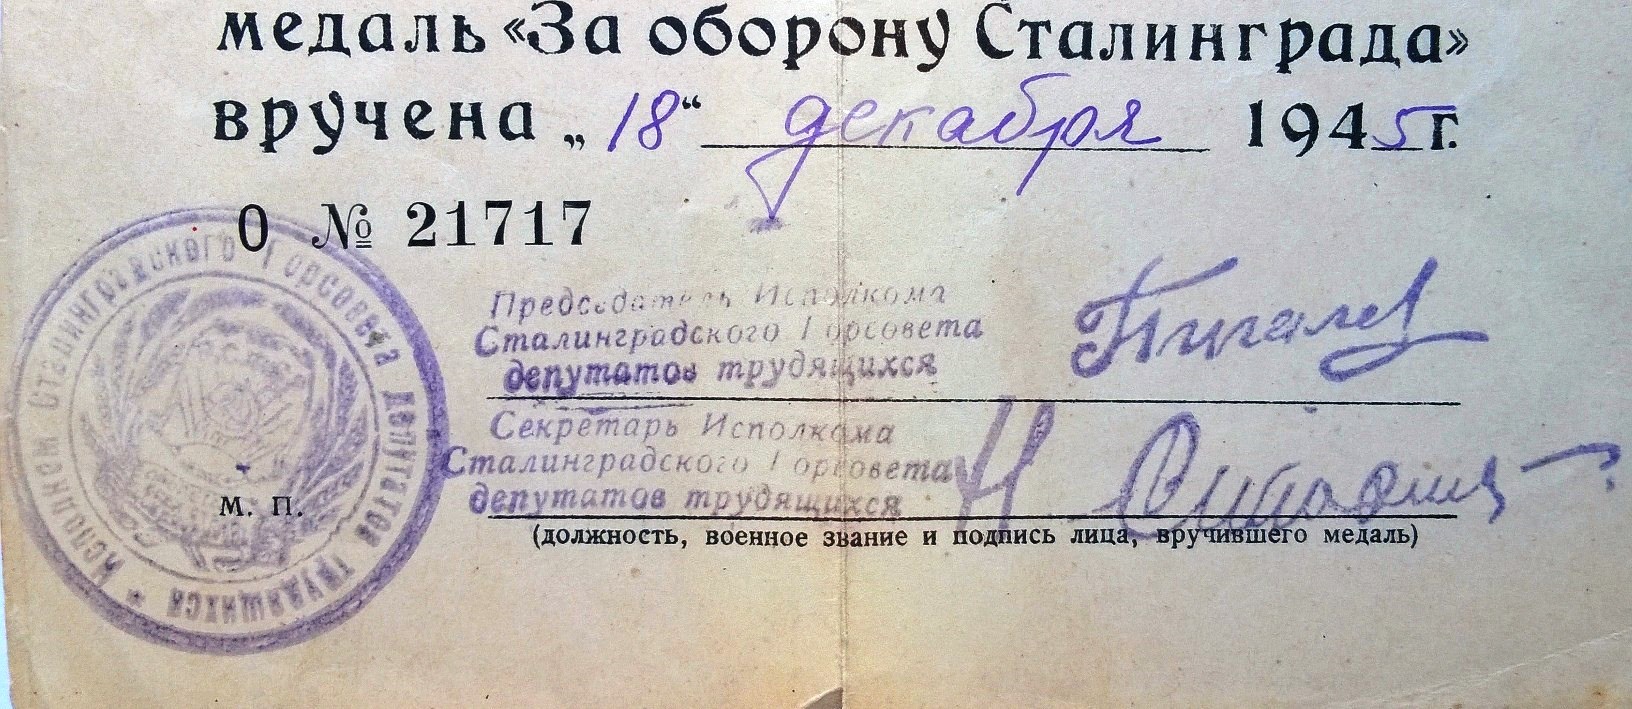 медаль «За оборону Сталинграда»
вручена „18“ декабря 1945 г.
О № 21717
Исполком Сталинградского Горсовета депутатов трудящихся *
м. п.
Председатель Исполкома
Сталинградского Горсовета
депутатов трудящихся
Пигалев
Секретарь Исполкома
Сталинградского Горсовета
депутатов трудящихся
(должность, военное звание и подпись лица, вручившего медаль)